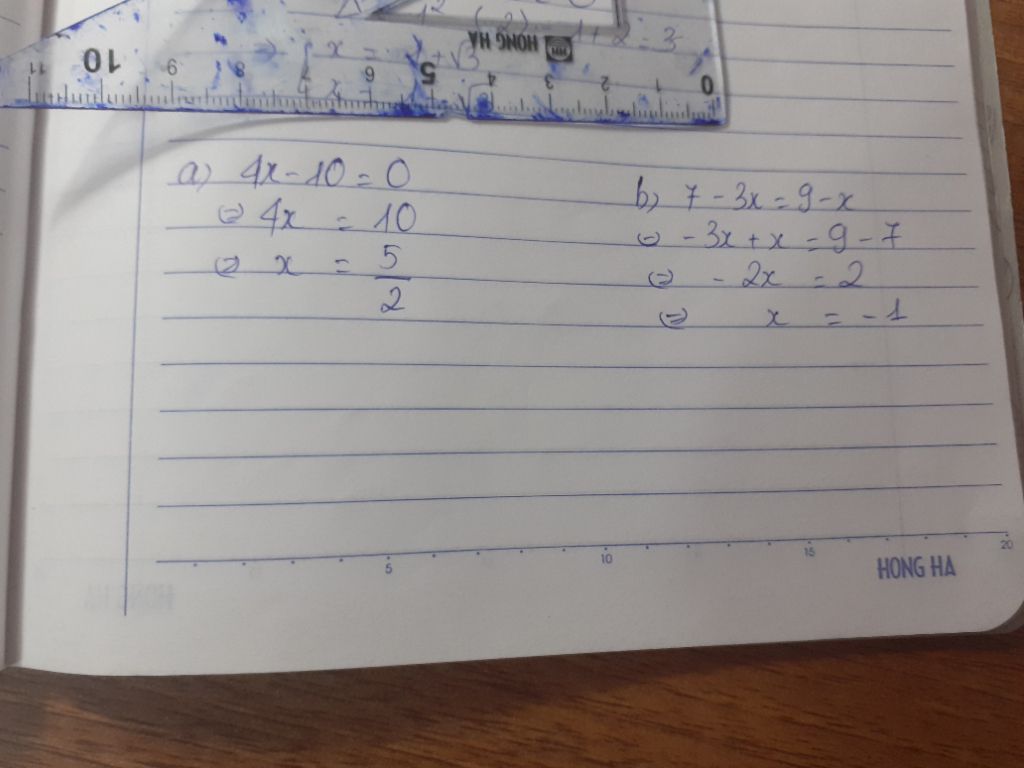 HONG HA
11 10 9 8 7 6 5 4 3 2 1 0
a) 4x - 10 = 0
(=) 4x = 10
(=) x = 5/2
b) 7 - 3x = 9 - x
(=) - 3x + x = 9 - 7
(=) - 2x = 2
(=) x = - 1
5 10 15 20
HONG HA